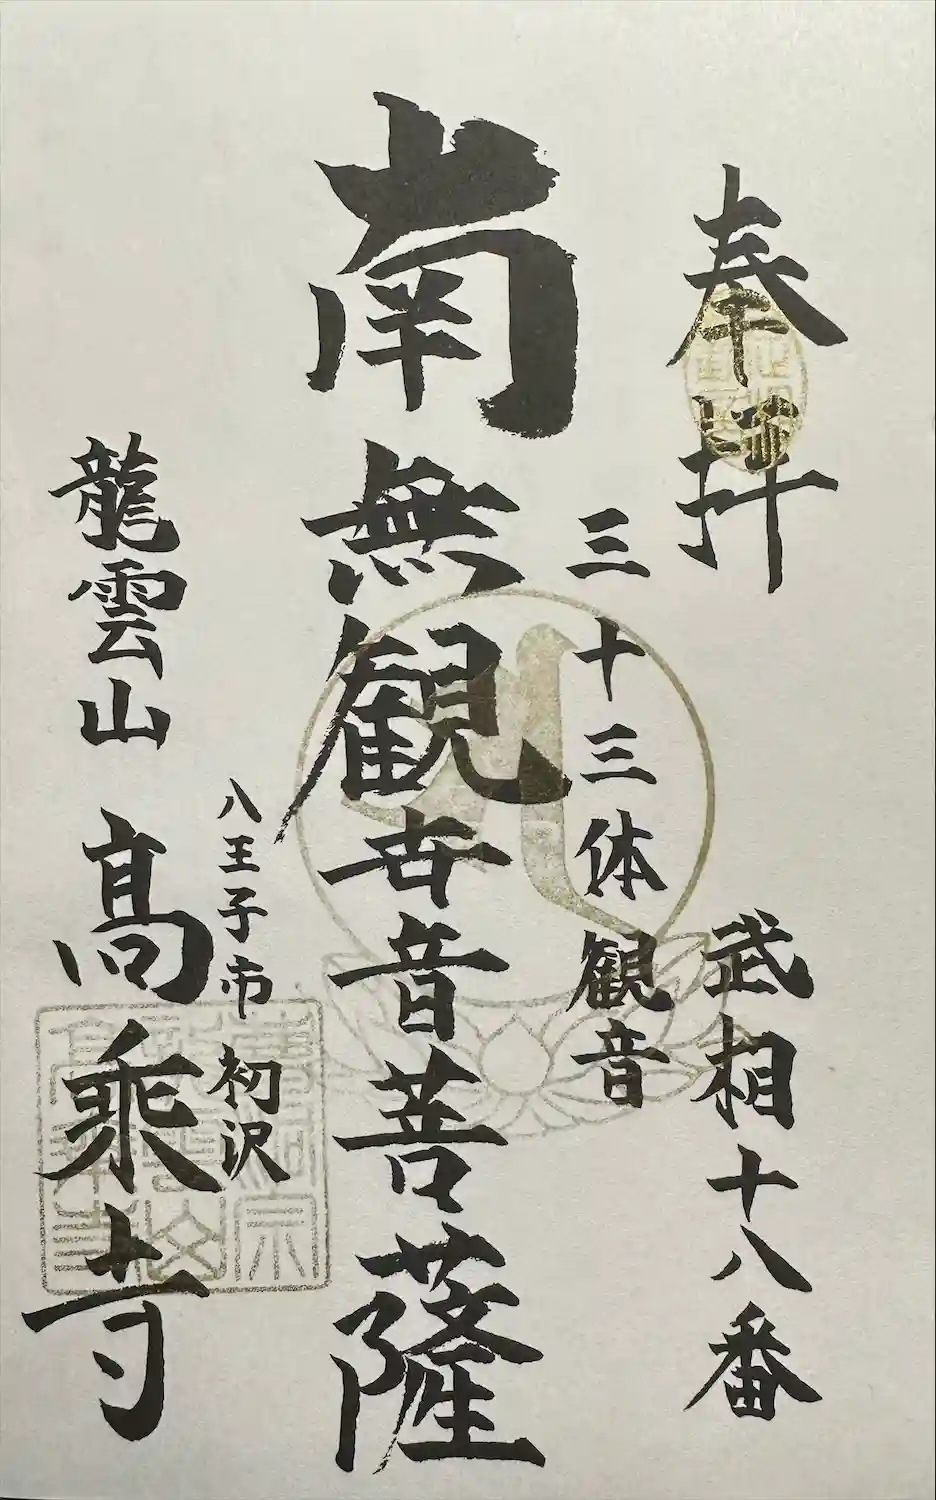 奉拝
武相十八番
三十三体観音
南無観世音菩薩
八王子市初沢
龍雲山高乗寺